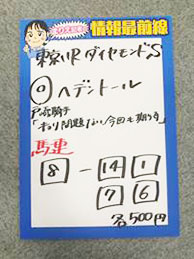 情報最前線
東京11R ダイヤモンドS
◎ヘデントール
戸崎騎手
「まわり問題ない 今回も期待」
馬連
8 - 14 1
7 6
各500円